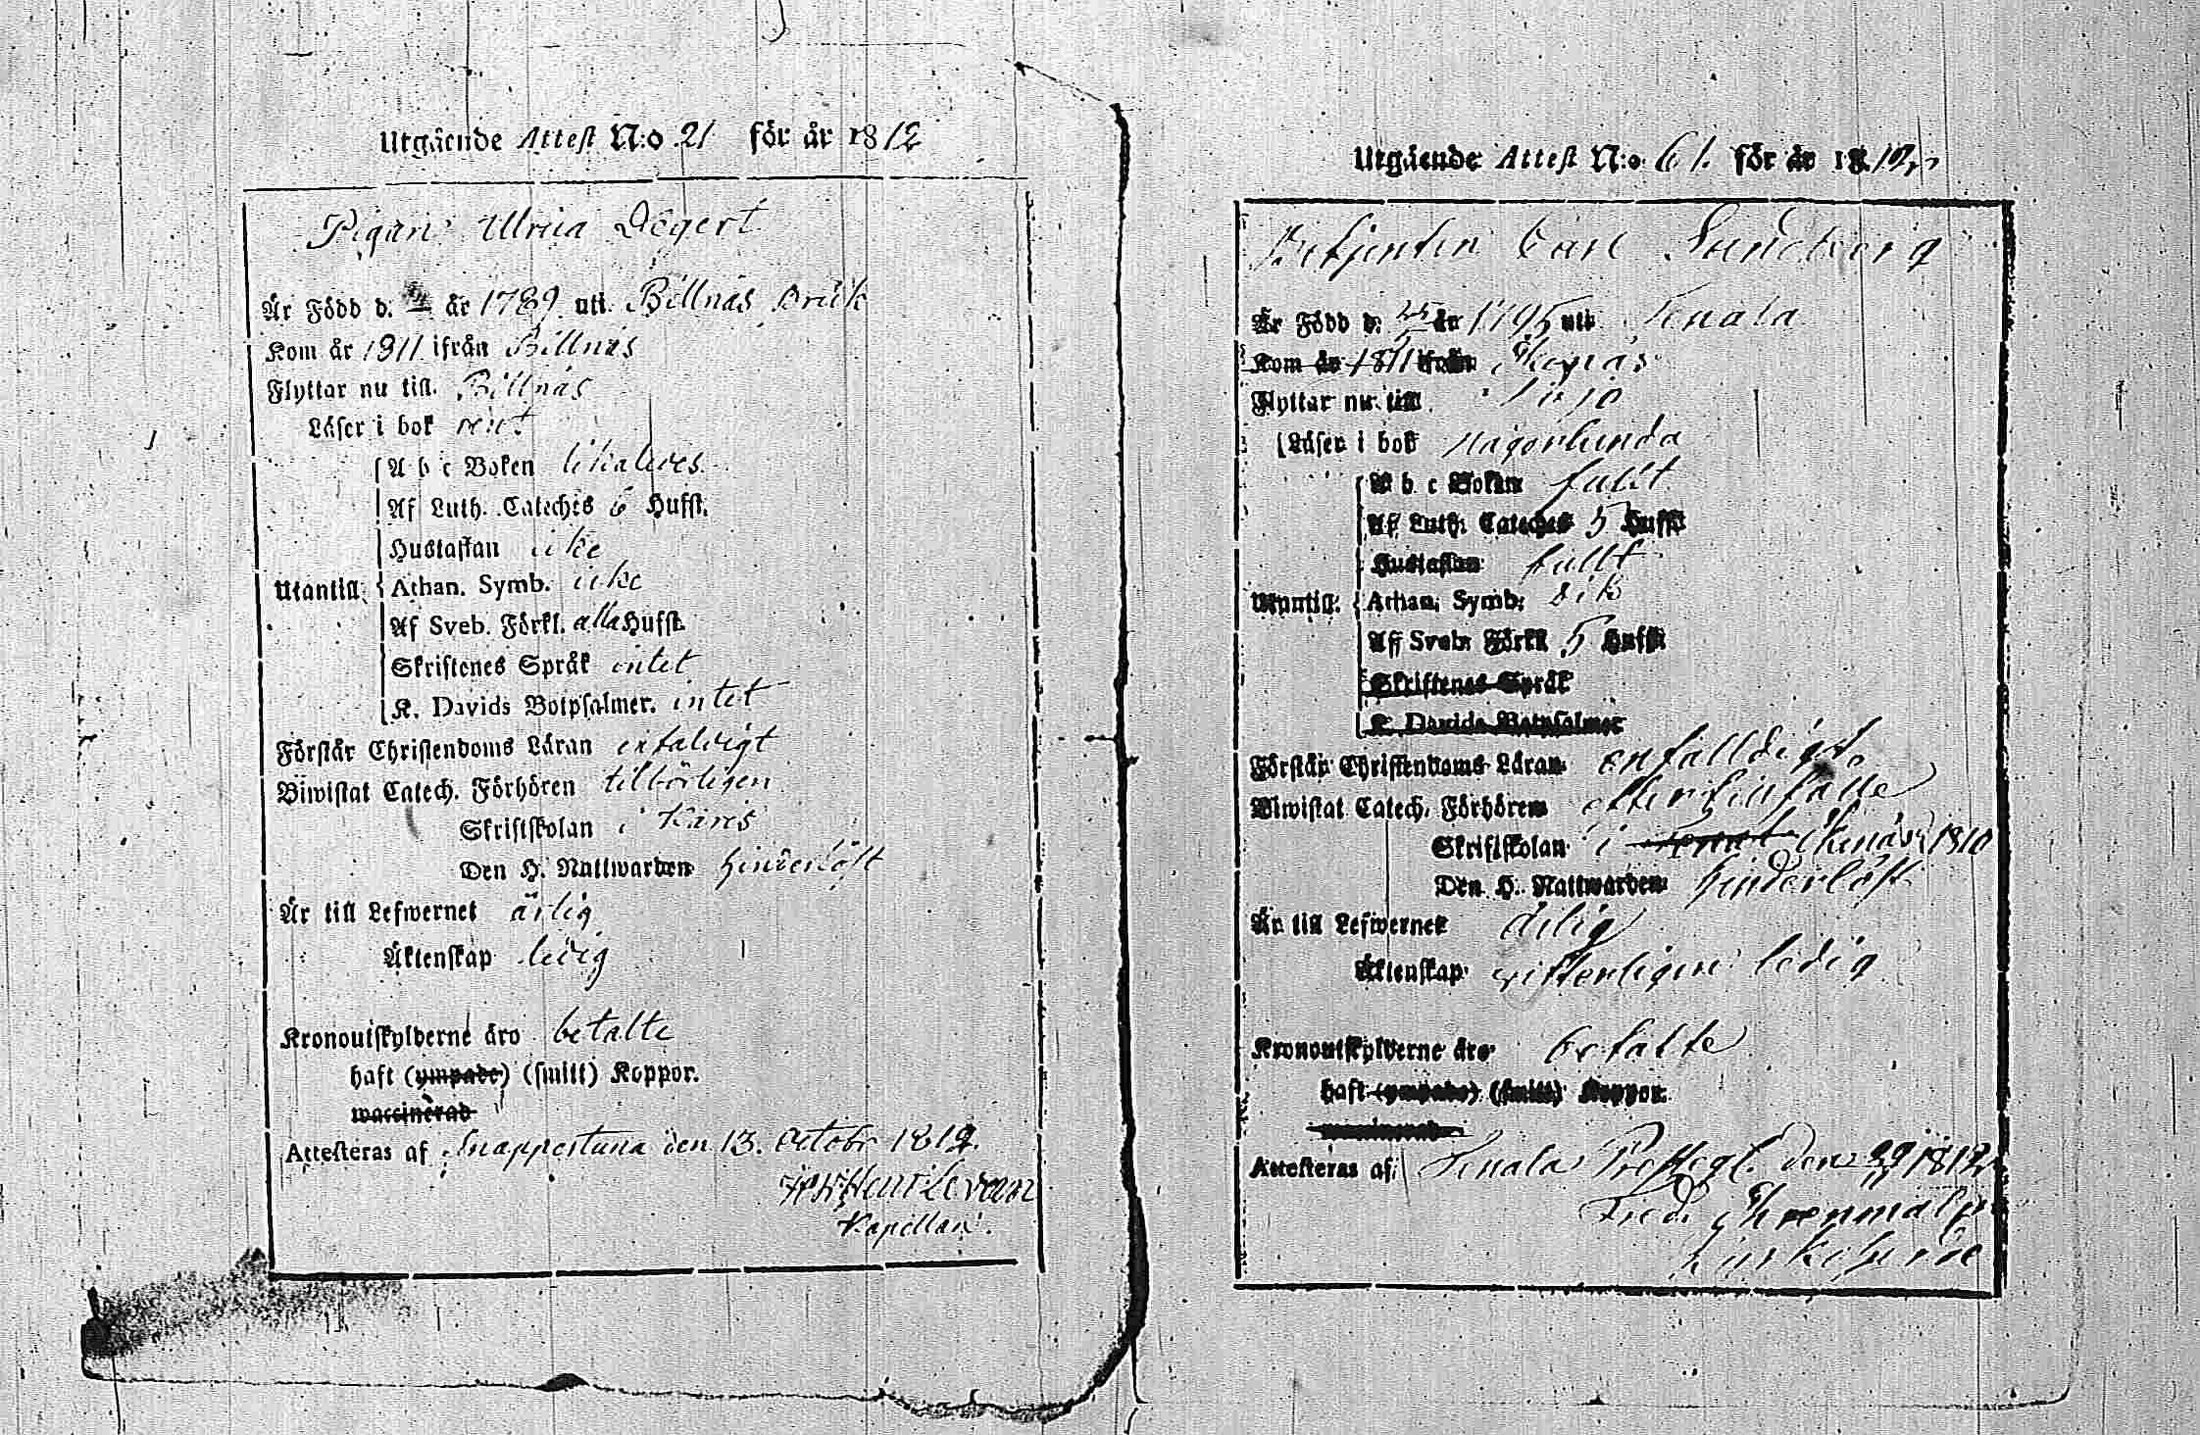 Utgående Attest N:o 21 för år 1812
Pigan Ulrica Degert
Är Född d. år 1789 uti Billnäs Bruk
Kom år 1811 ifrån Billnäs
Flyttar nu till Billnäs
Läser i bok rent
A b c Boken likaledes
Af Luth. Cateches 6 Hufst.
Hustaflan icke
Utantill: Athan. Symb. icke
Af Sveb. Förkl. alla Hufst.
Skriftenes Språk intet
K. Davids Botpsalmer. intet
Förstår Christendoms Läran enfaldigt
Biwistat Catech. Förhören tilbörligen
Skriftskolan i Karis
Den H. Nattwarden hinderlöst
Är till Lefwernet ärlig
Äktenskap ledig
Kronoutskylderne äro betalte
haft (ympade) (smitt) Koppor.
waccinerad
Attesteras af Snappertuna den 13. Octobr 1812.
Kapellan.
Utgående Attest N:o 61. för år 1812
Betjenten Carl Sundberg
Är Född d. år 1795 uti Tenala
Kom år 1811 ifrån Ekenäs
Flyttar nu till
Läser i bok någorlunda
A b c Boken fullt
Af Luth. Cateches 5 Hufst
Hustaflan fullt
Utantill. Athan. Symb.
Af Sveb. Förkl 5 Hufst
Skriftenes Språk
K. Davids Botpsalmer
Förstår Christendoms Läran enfalldigt
Biwistat Catech. Förhören
Skriftskolan i Ekenäs 1810
Den H. Nattwarden hinderlöst
Är till Lefwernet ärlig
Äktenskap ledig
Kronoutskylderne äro betalte
haft (ympade) (smitt) Koppor.
Attesteras af Tenala den 1812
Fred.
Kyrkoherde